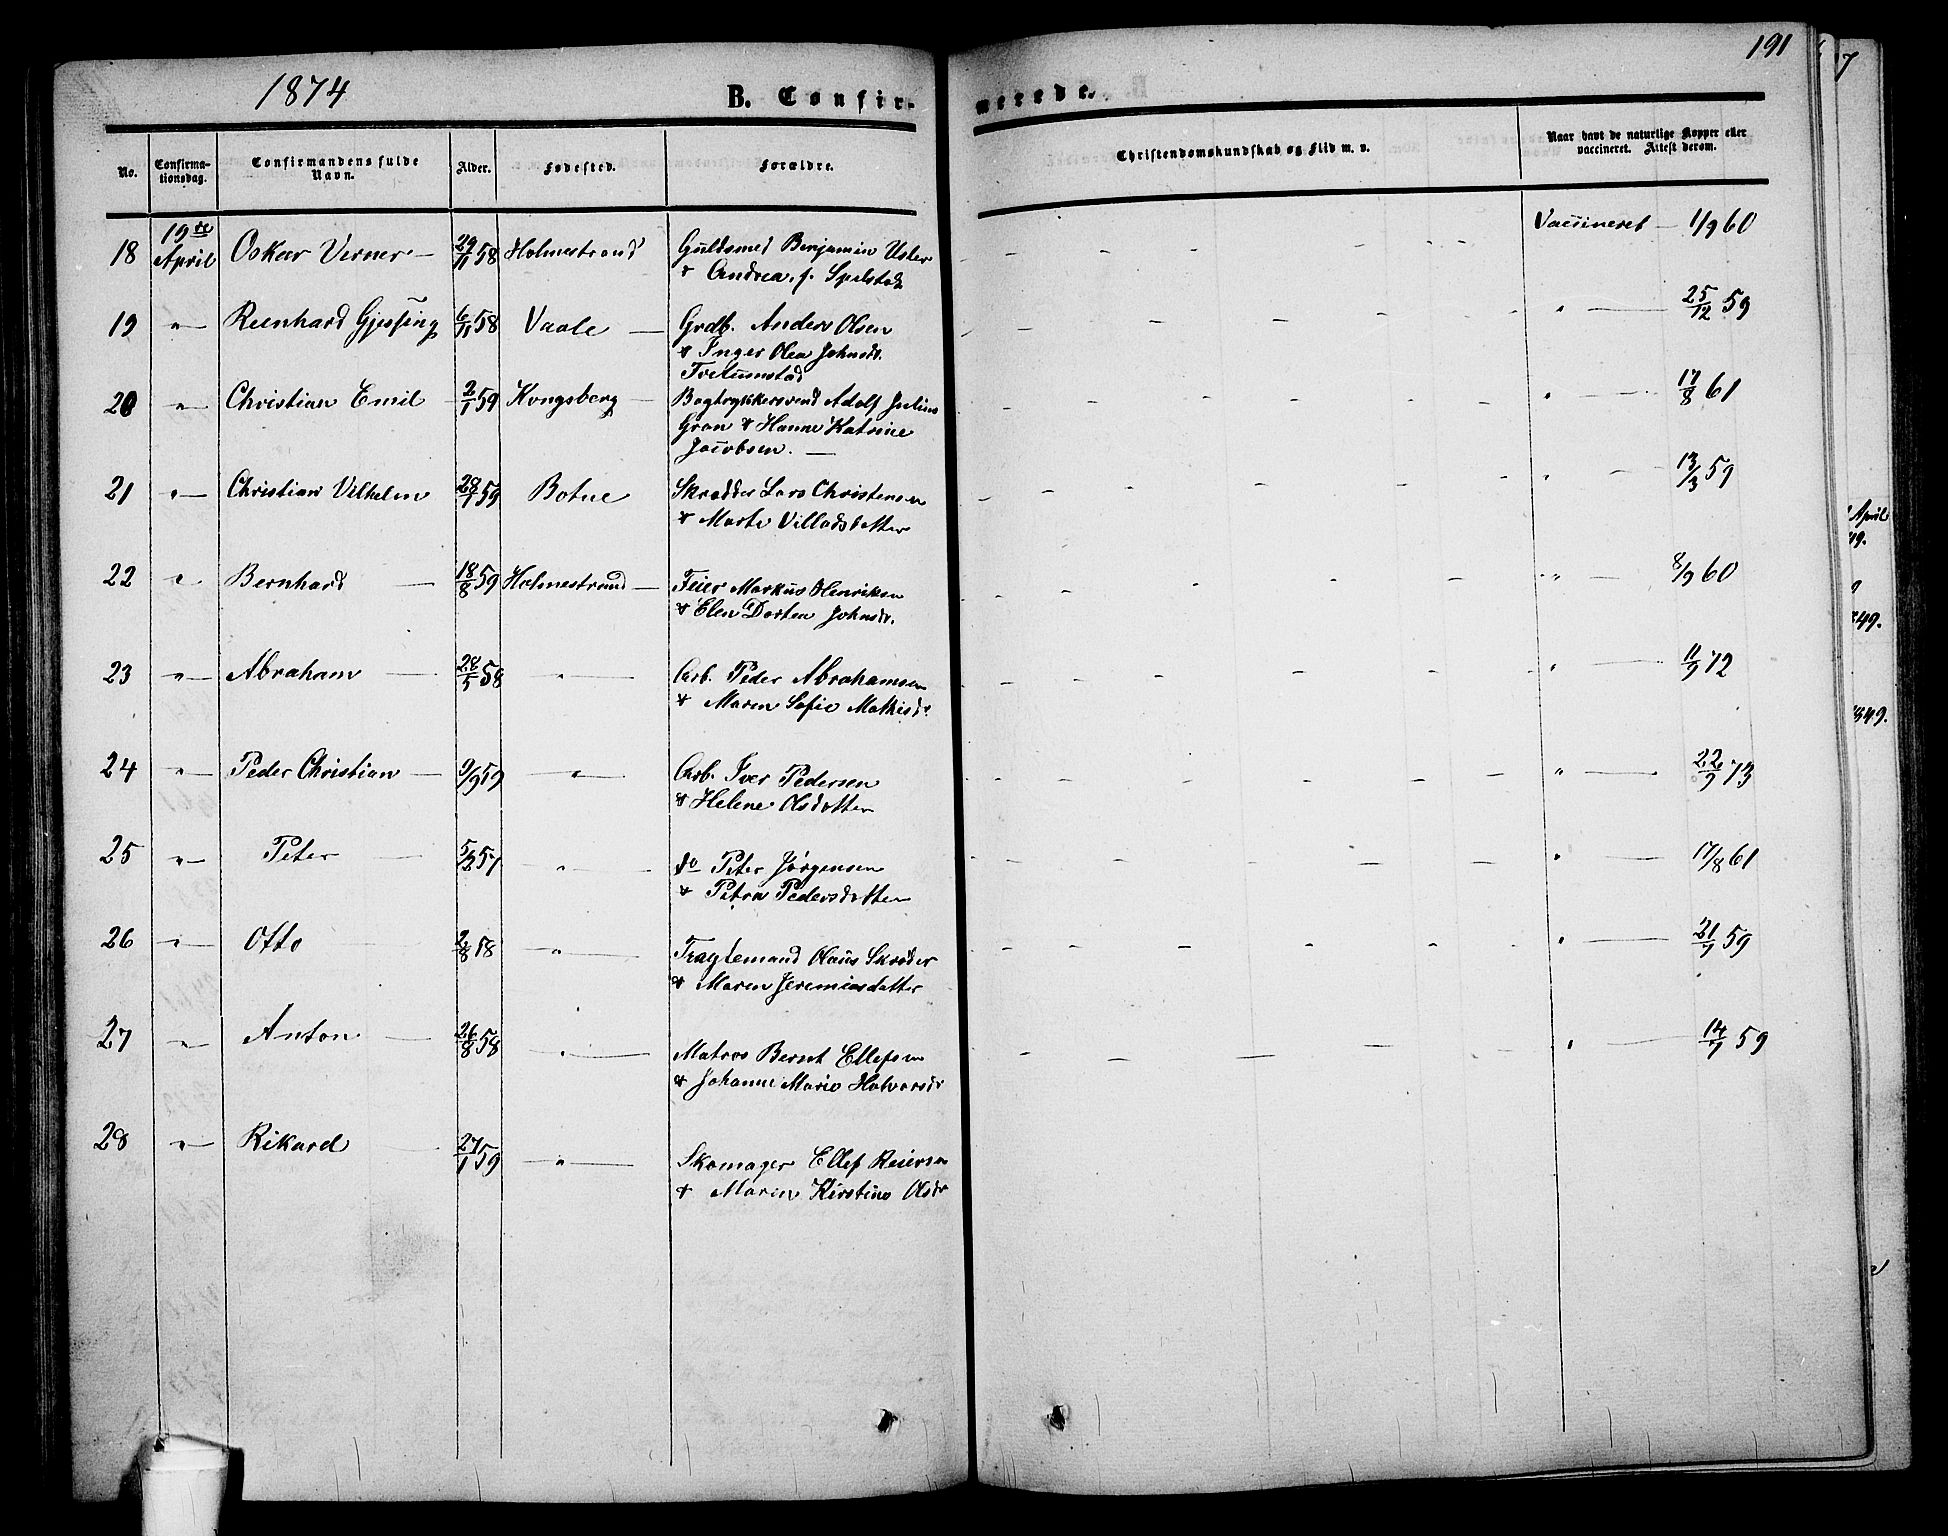 1874 B. Confirmerede. 191
No. Confirmationsdag. Confirmandens fulde Navn. Alder. Fødested. Forældre. Christendomskundskab og Flid m. v. Naar havt de naturlige Kopper eller vaccineret. Attest derom.
18 19de April Oskar Verner — 29/11 58 Holmestrand Guldsmed Benjamin Vister - - - Vaccineret — 1/9 60
& Andrea, f.
19 " — Reenhard Gjessing 6/11 58 Vaale — Grdb. Anders Olsen " — 25/12 59
& Inger Olea Johnsdr.
20 " — Christian Emil 2/1 59 Kongsberg — Bogtrykkersvend Adolf Julius " — 17/8 61
Gran & Hanne Katrine
Jacobsen. —
21 " — Christian Vilhelm 28/1 59 Botne Skrædder Lars Christensen " — 13/3 59
& Marte Villadsdatter
22 " Bernhard — 18/8 59 Holmestrand — Feier Markus Henriksen " — 8/9 60
& Elen Dorten Johnsdr.
23 " — Abraham — 28/5 58 " — Arb. Peder Abrahamsen " — 11/9 72
& Maren Sofie Mathisdr.
24 " — Peder Christian — 9/9 59 " — Arb. Iver Pedersen " — 22/9 73
& Helene Olsdatter
25 " — Peter — 5/2 57 " — do Peter Jørgensen " — 17/8 61
& Petra Pedersdatter
26 " — Otto 2/8 58 " — Fragtemand Olaus Skrøder " — 21/7 59
& Maren Jeremiasdatter
27 " — Anton — 26/8 58 " — Matros Bernt Ellefsen " 14/7 59
& Johanne Marie Halvorsdr
28 " — Rikard 27/1 59 " — Skomager Ellef Reiersen
& Maren Kirstine Olsdr
April
49.
49.
1849.
7